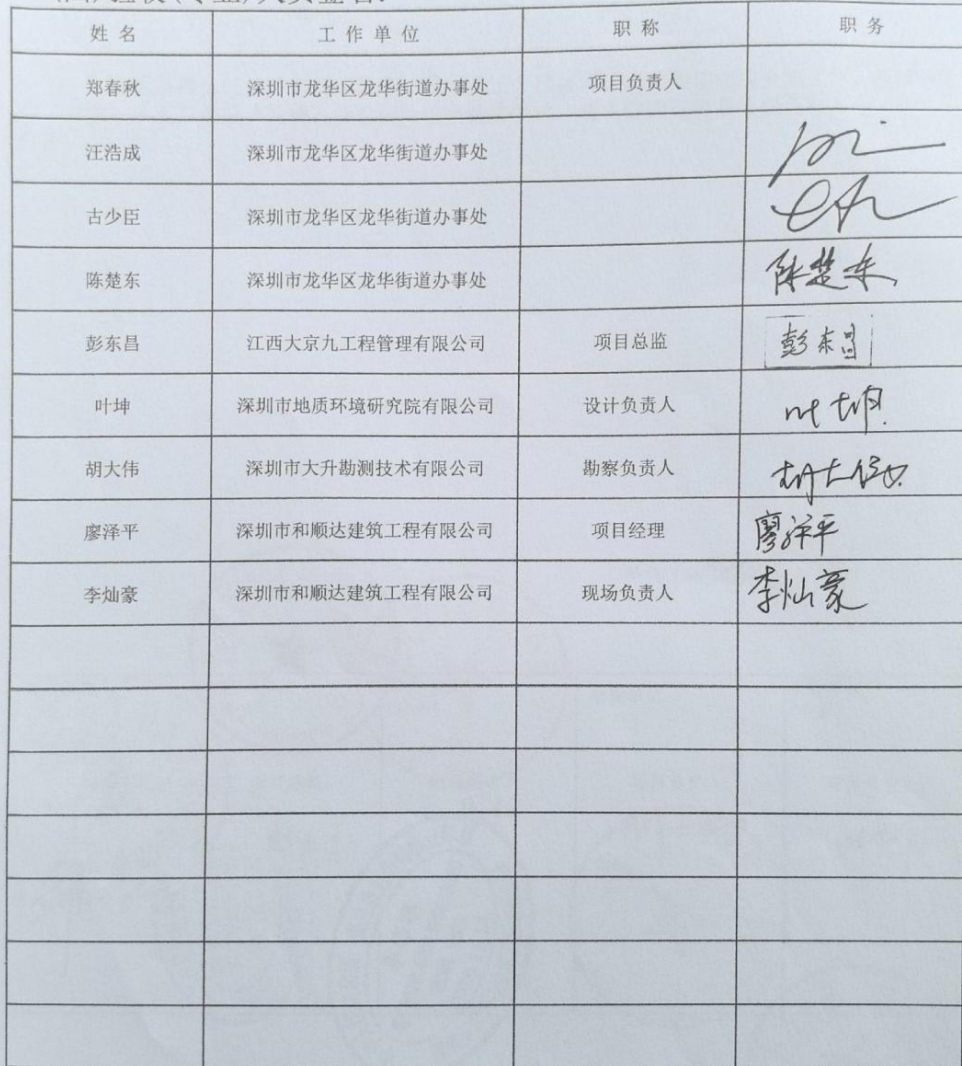 姓名 工作单位 职称 职务
郑春秋 深圳市龙华区龙华街道办事处 项目负责人
汪浩成 深圳市龙华区龙华街道办事处
古少臣 深圳市龙华区龙华街道办事处
陈楚东 深圳市龙华区龙华街道办事处 陈楚东
彭东昌 江西大京九工程管理有限公司 项目总监 彭东昌
叶坤 深圳市地质环境研究院有限公司 设计负责人 叶坤
胡大伟 深圳市大升勘测技术有限公司 勘察负责人 胡大伟
廖泽平 深圳市和顺达建筑工程有限公司 项目经理 廖泽平
李灿豪 深圳市和顺达建筑工程有限公司 现场负责人 李灿豪